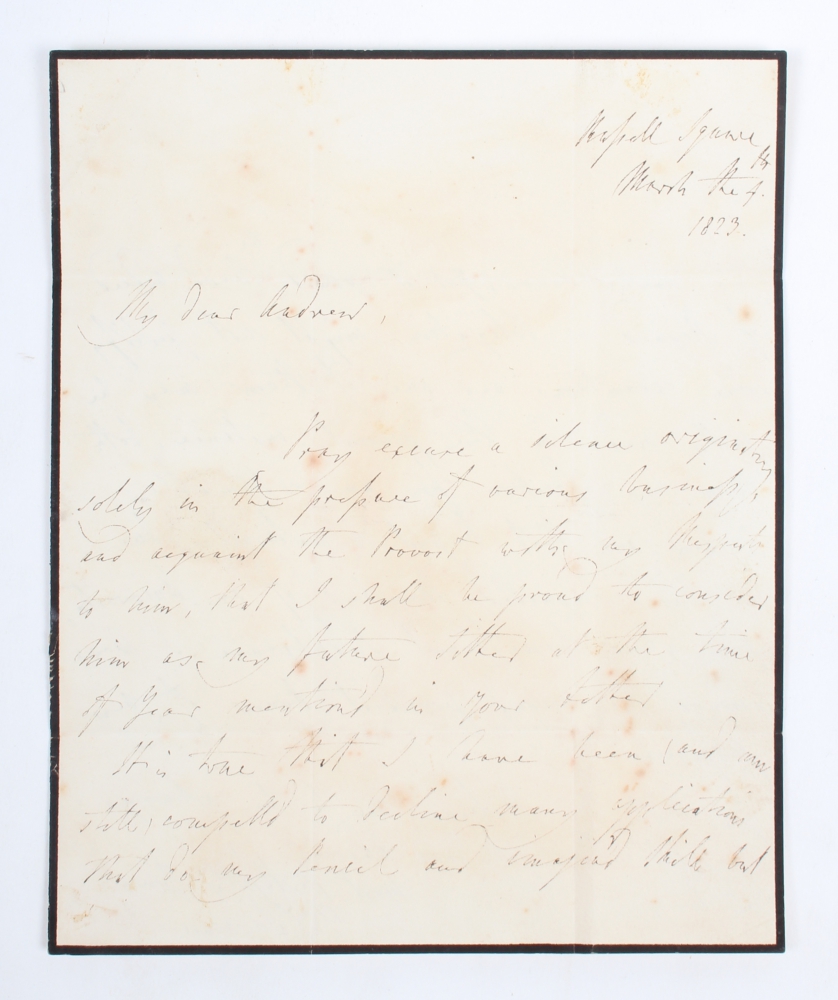 Russell Square
March the 4th.
1823.
My dear Andrew,
Pray excuse a silence originating
solely in the pressure of various business,
and acquaint the Provost with my Respects
to him, that I shall be proud to consider
him as my future Sitter at the time
of Year mention'd in your Letter.
It is true that I have been (and am
still) compell'd to decline many applications
that do my Pencil and imagin'd Skill but